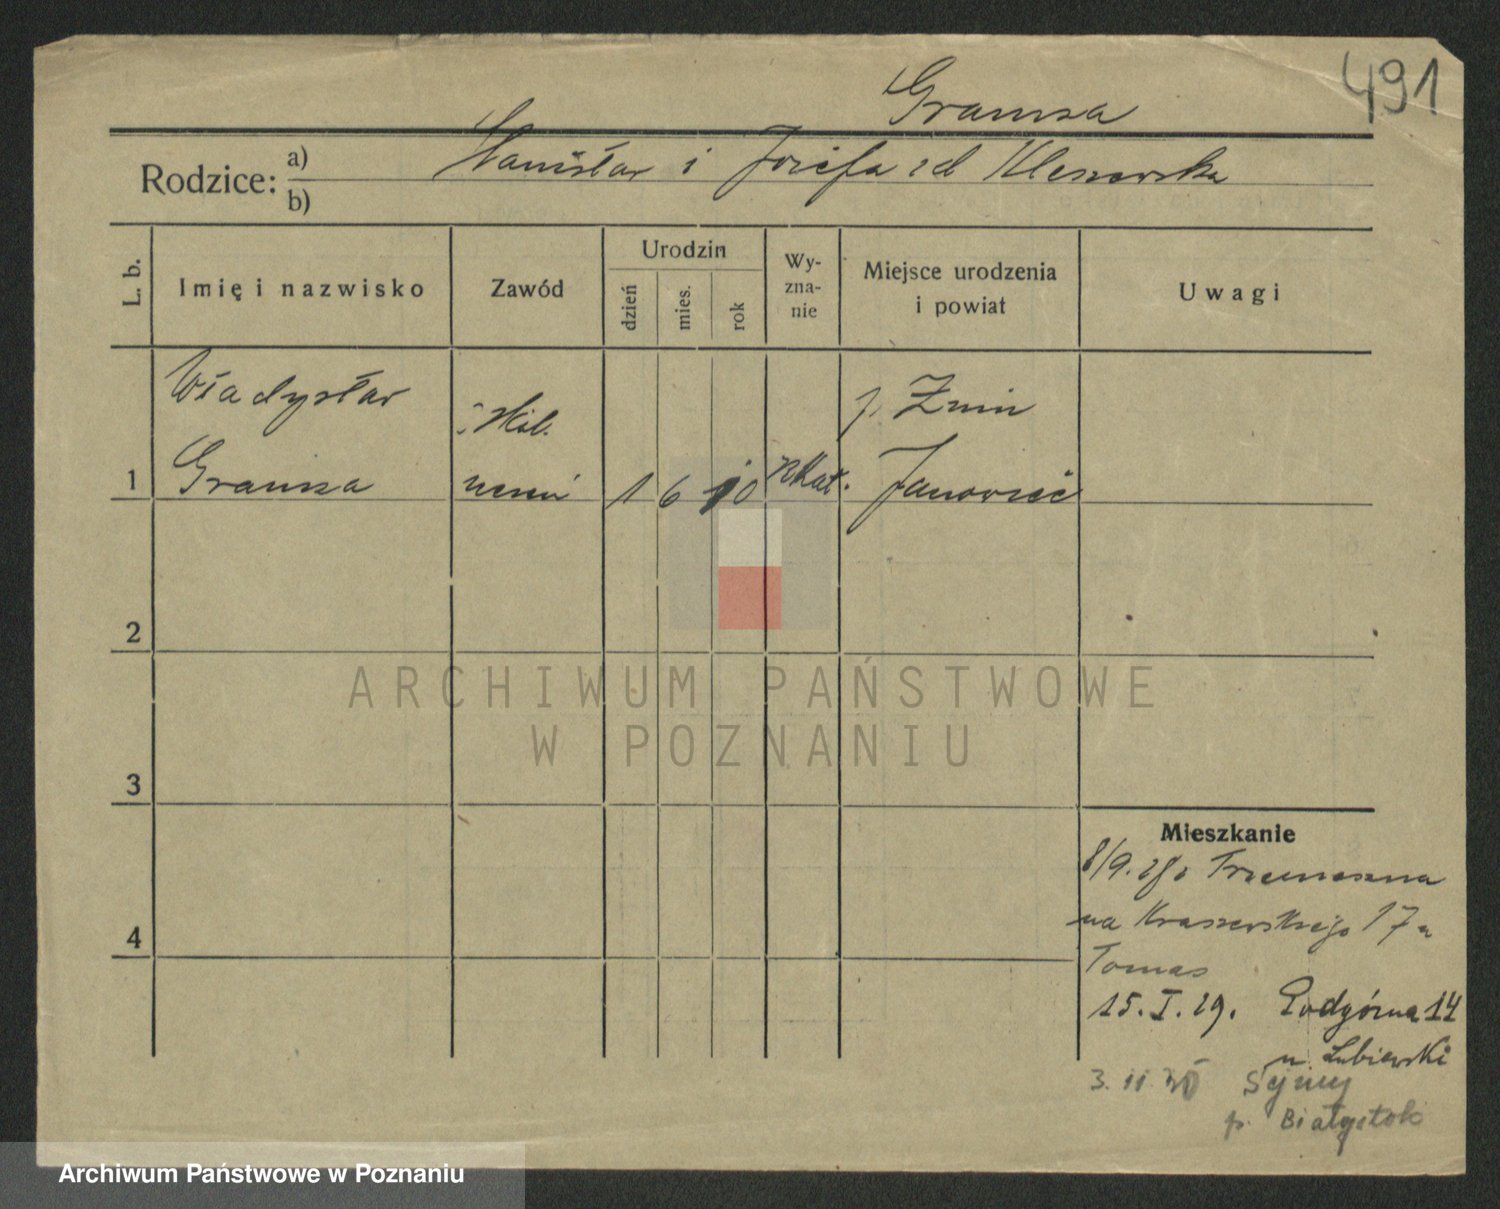 491
Gramza
Rodzice: a) Stanisław i Józefa zd Kleszewska
b)
L. b.
Imię i nazwisko
Zawód
Urodzin
dzień
mies.
rok
Wy-
zna-
nie
Miejsce urodzenia
i powiat
Uwagi
Władysław p. Żnin
1 Gramza uczeń 1 6 10 rkat. Janowiec
2
3
4
Mieszkanie
8/9. 28 z Trzemeszna
na Kraszewskiego 17 u
Tomas
15. I. 29. Podgórna 14
u Lubiewski
3. 11 30 Sejny
p. Białystok
ARCHIWUM PAŃSTWOWE
W POZNANIU
Archiwum Państwowe w Poznaniu